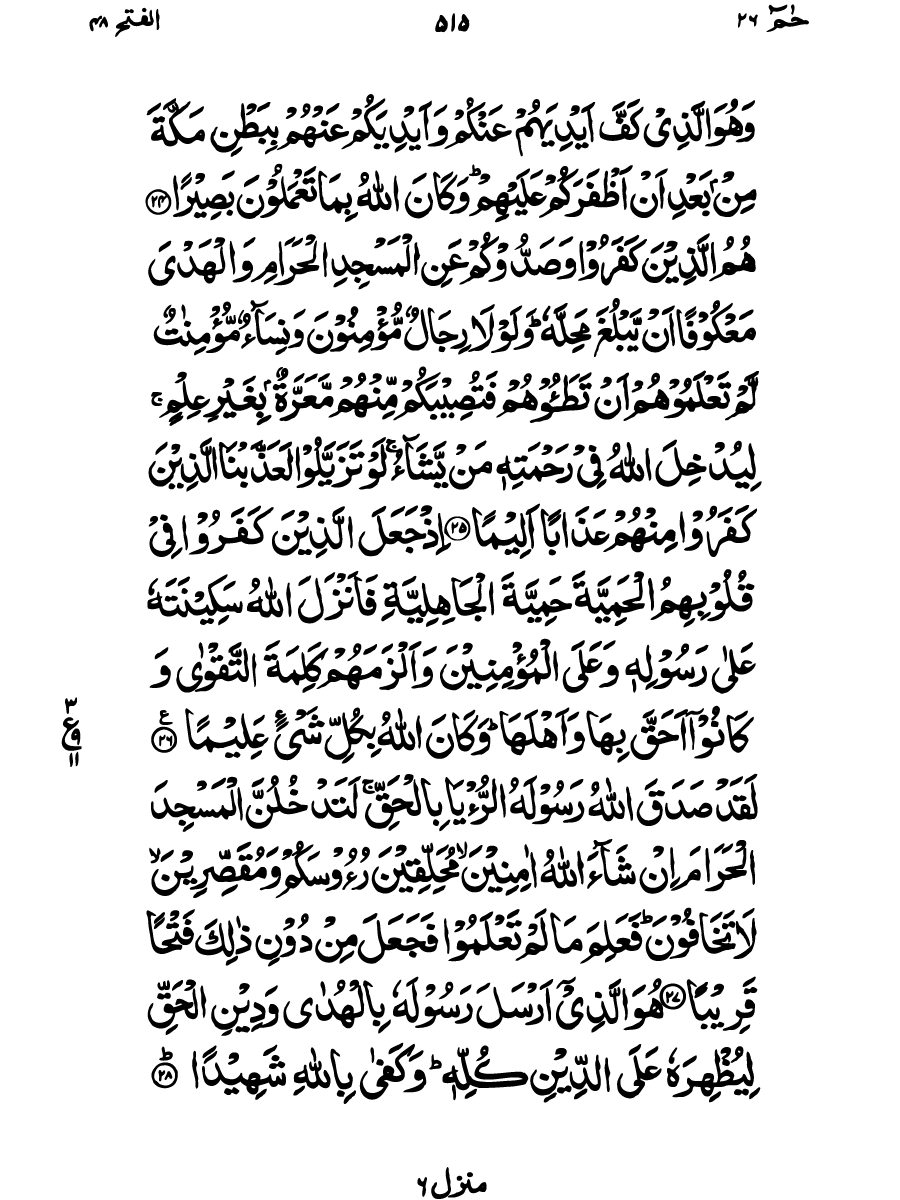 حٰمٓ ٢٦ ٥١٥ الفتح ٤٨
وَهُوَ الَّذِىْ كَفَّ اَيْدِيَهُمْ عَنْكُمْ وَاَيْدِيَكُمْ عَنْهُمْ بِبَطْنِ مَكَّةَ
مِنْۢ بَعْدِ اَنْ اَظْفَرَكُمْ عَلَيْهِمْ ؕ وَكَانَ اللّٰهُ بِمَا تَعْمَلُوْنَ بَصِيْرًا ﴿٢٤﴾
هُمُ الَّذِيْنَ كَفَرُوْا وَصَدُّوْكُمْ عَنِ الْمَسْجِدِ الْحَرَامِ وَالْهَدْىَ
مَعْكُوْفًا اَنْ يَّبْلُغَ مَحِلَّهٗ ؕ وَلَوْلَا رِجَالٌ مُّؤْمِنُوْنَ وَنِسَآءٌ مُّؤْمِنٰتٌ
لَّمْ تَعْلَمُوْهُمْ اَنْ تَطَـُٔوْهُمْ فَتُصِيْبَكُمْ مِّنْهُمْ مَّعَرَّةٌۢ بِغَيْرِ عِلْمٍ ۚ
لِيُدْخِلَ اللّٰهُ فِىْ رَحْمَتِهٖ مَنْ يَّشَآءُ ۚ لَوْ تَزَيَّلُوْا لَعَذَّبْنَا الَّذِيْنَ
كَفَرُوْا مِنْهُمْ عَذَابًا اَلِيْمًا ﴿٢٥﴾ اِذْ جَعَلَ الَّذِيْنَ كَفَرُوْا فِىْ
قُلُوْبِهِمُ الْحَمِيَّةَ حَمِيَّةَ الْجَاهِلِيَّةِ فَاَنْزَلَ اللّٰهُ سَكِيْنَتَهٗ
عَلٰى رَسُوْلِهٖ وَعَلَى الْمُؤْمِنِيْنَ وَاَلْزَمَهُمْ كَلِمَةَ التَّقْوٰى وَ
كَانُوْۤا اَحَقَّ بِهَا وَاَهْلَهَا ؕ وَكَانَ اللّٰهُ بِكُلِّ شَىْءٍ عَلِيْمًا ﴿٢٦﴾ ع
٣ ع ٩ ١١
لَقَدْ صَدَقَ اللّٰهُ رَسُوْلَهُ الرُّءْيَا بِالْحَقِّ ۚ لَتَدْخُلُنَّ الْمَسْجِدَ
الْحَرَامَ اِنْ شَآءَ اللّٰهُ اٰمِنِيْنَ ۙ مُحَلِّقِيْنَ رُءُوْسَكُمْ وَمُقَصِّرِيْنَ ۙ
لَا تَخَافُوْنَ ؕ فَعَلِمَ مَا لَمْ تَعْلَمُوْا فَجَعَلَ مِنْ دُوْنِ ذٰلِكَ فَتْحًا
قَرِيْبًا ﴿٢٧﴾ هُوَ الَّذِىْۤ اَرْسَلَ رَسُوْلَهٗ بِالْهُدٰى وَدِيْنِ الْحَقِّ
لِيُظْهِرَهٗ عَلَى الدِّيْنِ كُلِّهٖ ؕ وَكَفٰى بِاللّٰهِ شَهِيْدًا ﴿٢٨﴾ ؕ
منزل ٦